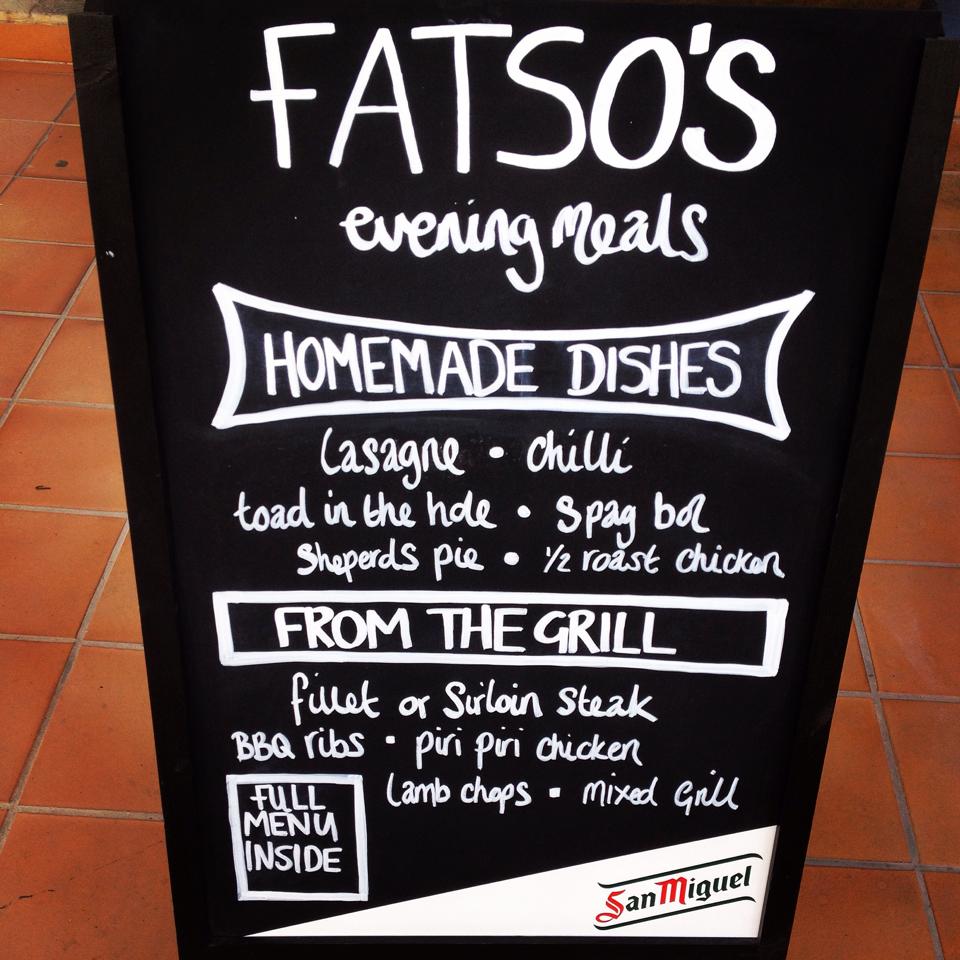 FATSO'S
evening meals
HOMEMADE DISHES
Lasagne • chilli
toad in the hole • Spag bol
Sheperds pie • 1/2 roast chicken
FROM THE GRILL
fillet or Sirloin Steak
BBQ ribs • piri piri chicken
Lamb chops • mixed Grill
FULL
MENU
INSIDE
San Miguel